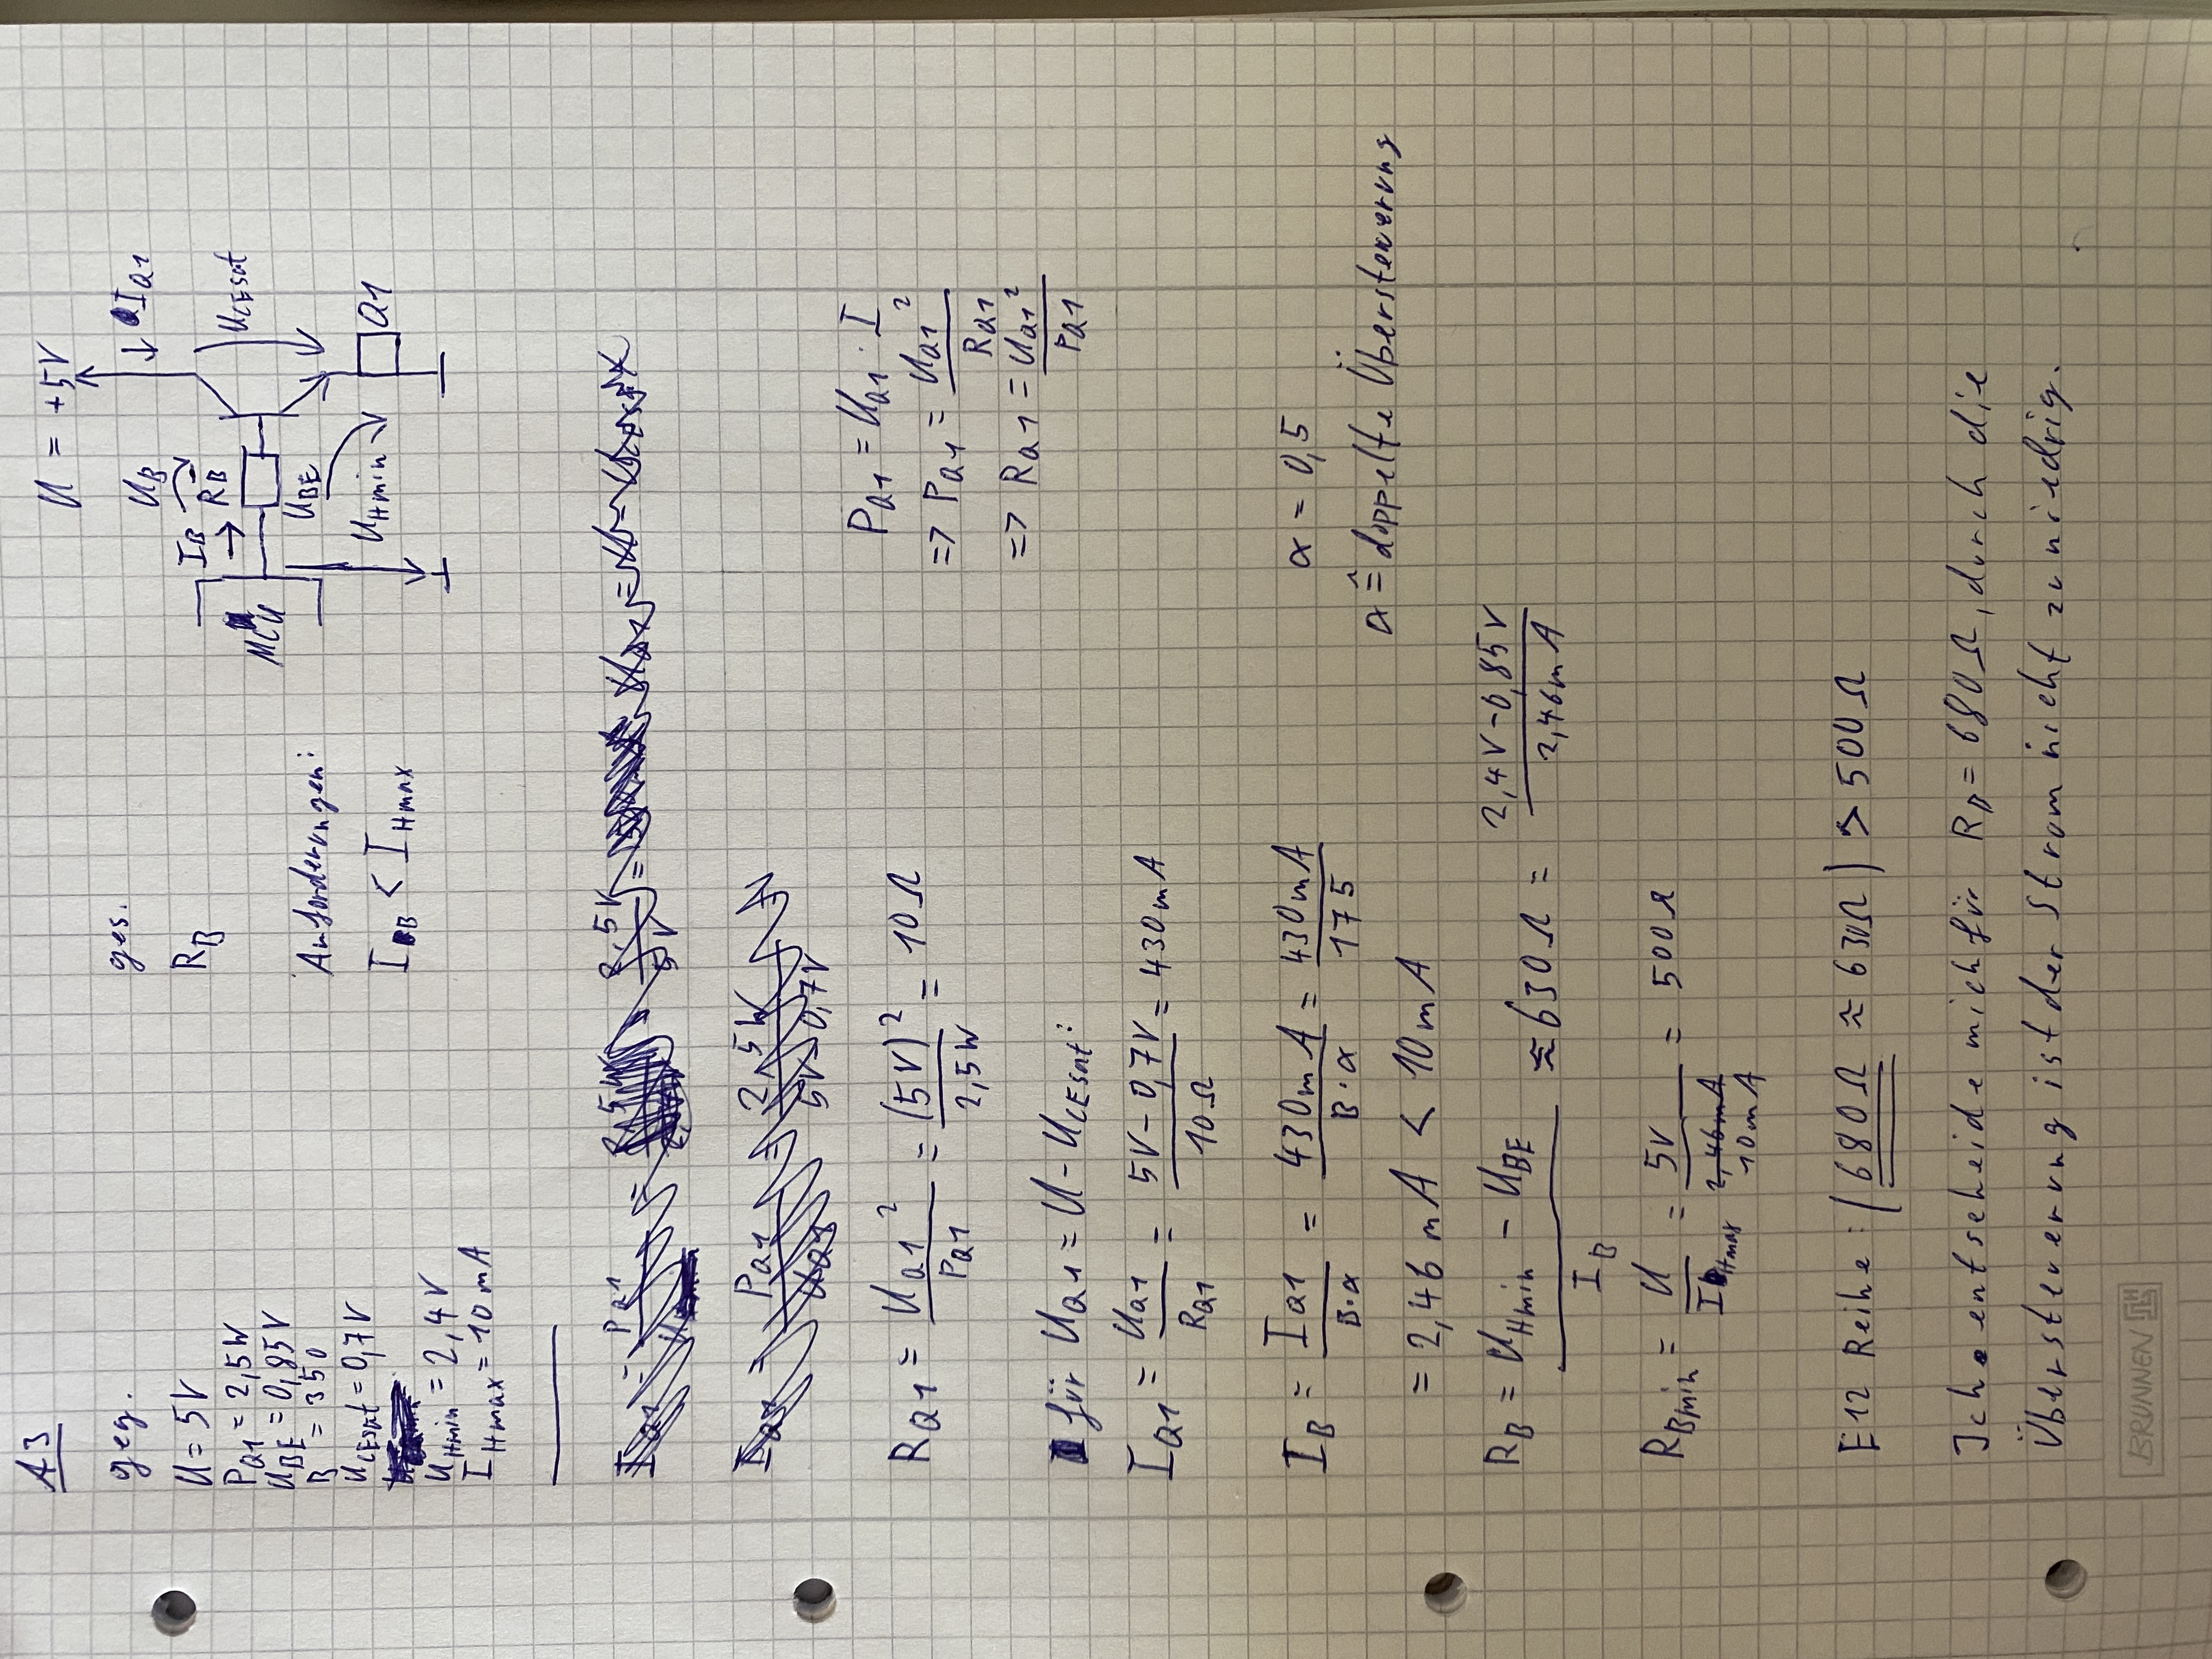 A3
geg.
U = 5V
P_Q1 = 2,5W
U_BE = 0,85V
B = 350
U_CEsat = 0,7V
U_Hmin = 2,4V
I_Hmax = 10mA
ges.
R_B
Anforderungen:
I_B < I_Hmax
U = +5V
I_Q1
U_B
I_B
R_B
U_CEsat
MCU
U_BE
U_Hmin
Q1
I_Q1 = P_Q1 / U_Q1 = 2,5W / 5V - 0,7V
R_Q1 = U_Q1² / P_Q1 = (5V)² / 2,5W = 10Ω
P_Q1 = U_Q1 · I
=> P_Q1 = U_Q1² / R_Q1
=> R_Q1 = U_Q1² / P_Q1
für U_Q1 = U - U_CEsat:
I_Q1 = U_Q1 / R_Q1 = 5V - 0,7V / 10Ω = 430mA
I_B = I_Q1 / B·α = 430mA / B·α = 430mA / 175
α = 0,5
α ≙ doppelte Übersteuerung
= 2,46mA < 10mA
R_B = U_Hmin - U_BE / I_B ≈ 630Ω = 2,4V - 0,85V / 2,46mA
R_Bmin = U / I_Hmax = 5V / 2,46mA 10mA = 500Ω
E12 Reihe: (680Ω ≈ 630Ω) > 500Ω
Ich entscheide mich für R_B = 680Ω, durch die
Übersteuerung ist der Strom nicht zu niedrig.
BRUNNEN